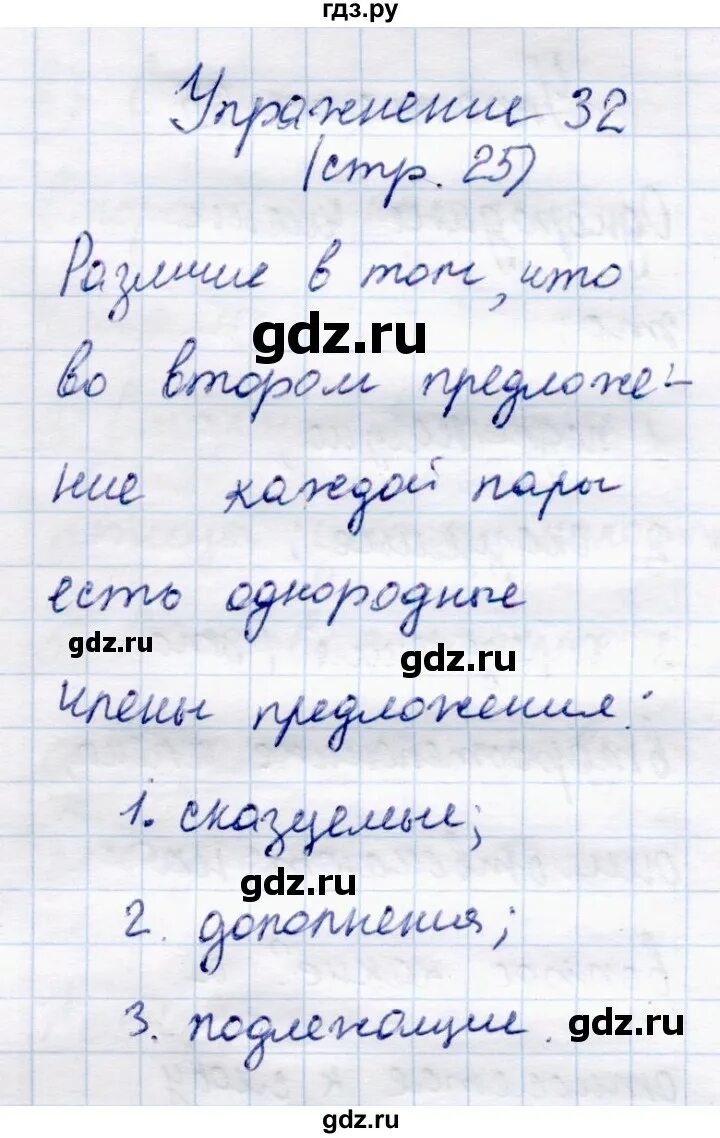 гдз.ру
Упражнение 32
(стр. 25)
Различие в том, что
gdz.ru
во втором предложе-
ние каждой пары
есть однородные
gdz.ru
gdz.ru
члены предложения:
1. сказуемые;
gdz.ru
2. дополнения;
3. подлежащие.
gdz.ru
gdz.ru